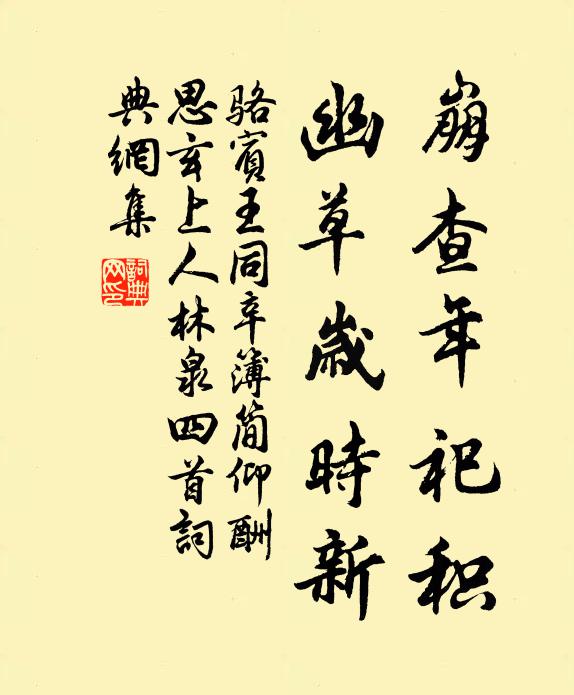 崩查年祀积
幽草岁時新
骆賓王同辛簿简仰酬
思玄上人林泉四首詞
典網集
詞典网印